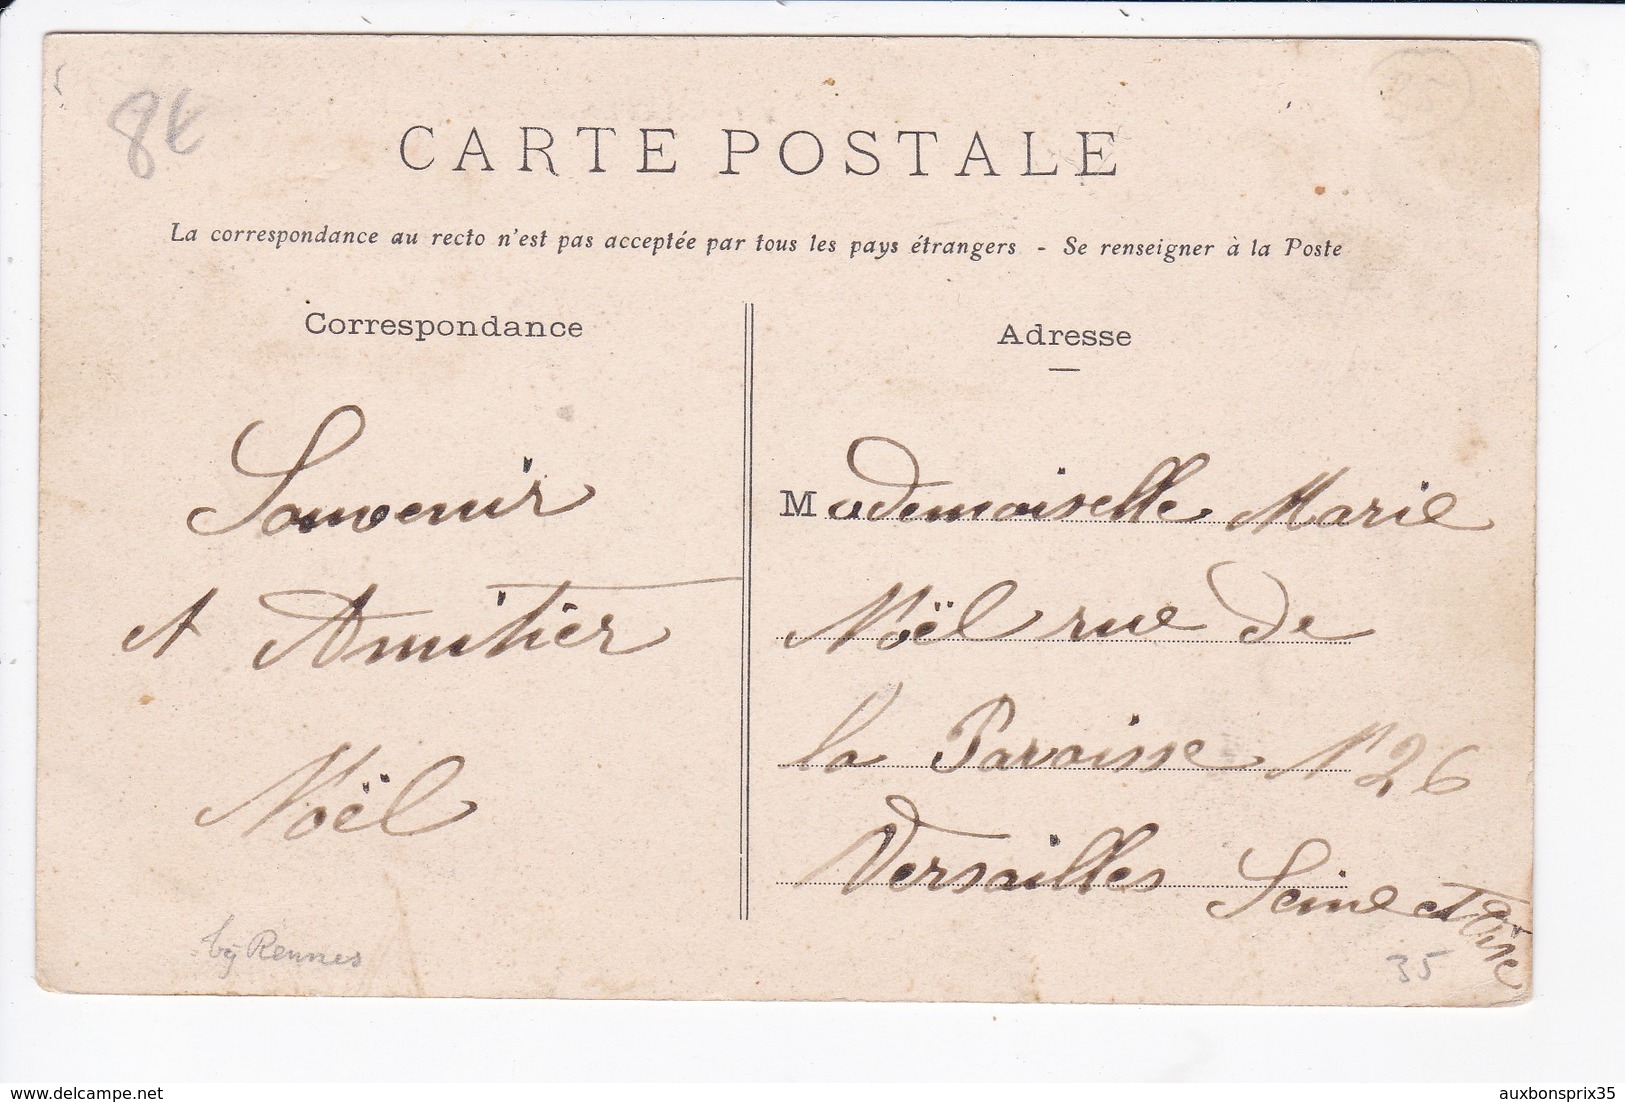 8€
CARTE POSTALE
La correspondance au recto n'est pas acceptée par tous les pays étrangers - Se renseigner à la Poste
Correspondance
Souvenir
et Amitier
Noël
Adresse
Mademoiselle Marie
Noël rue de
la Paroisse N 26
Versailles Seine et Oise
Rennes
35
delcampe.net
auxbonsprix35